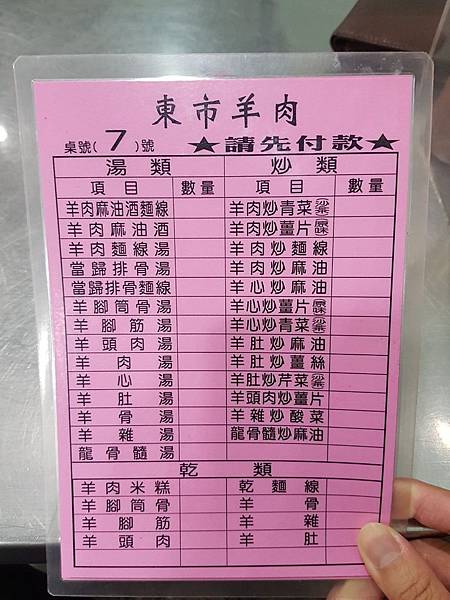 東市羊肉
桌號( 7 )號 ★請先付款★
湯類 炒類
項目 數量 項目 數量
羊肉麻油酒麵線 羊肉炒青菜沙茶
羊肉麻油酒 羊肉炒薑片原味
羊肉麵線湯 羊肉炒麵線
當歸排骨湯 羊肉炒麻油
當歸排骨麵線 羊心炒麻油
羊腳筒骨湯 羊心炒薑片原味
羊腳筋湯 羊心炒青菜沙茶
羊頭肉湯 羊肚炒麻油
羊肉湯 羊肚炒薑絲
羊心湯 羊肚炒芹菜沙茶
羊肚湯 羊頭肉炒薑片
羊骨湯 羊雜炒酸菜
羊雜湯 龍骨髓炒麻油
龍骨髓湯
乾類
羊肉米糕 乾麵線
羊腳筒骨 羊骨
羊腳筋 羊雜
羊頭肉 羊肚